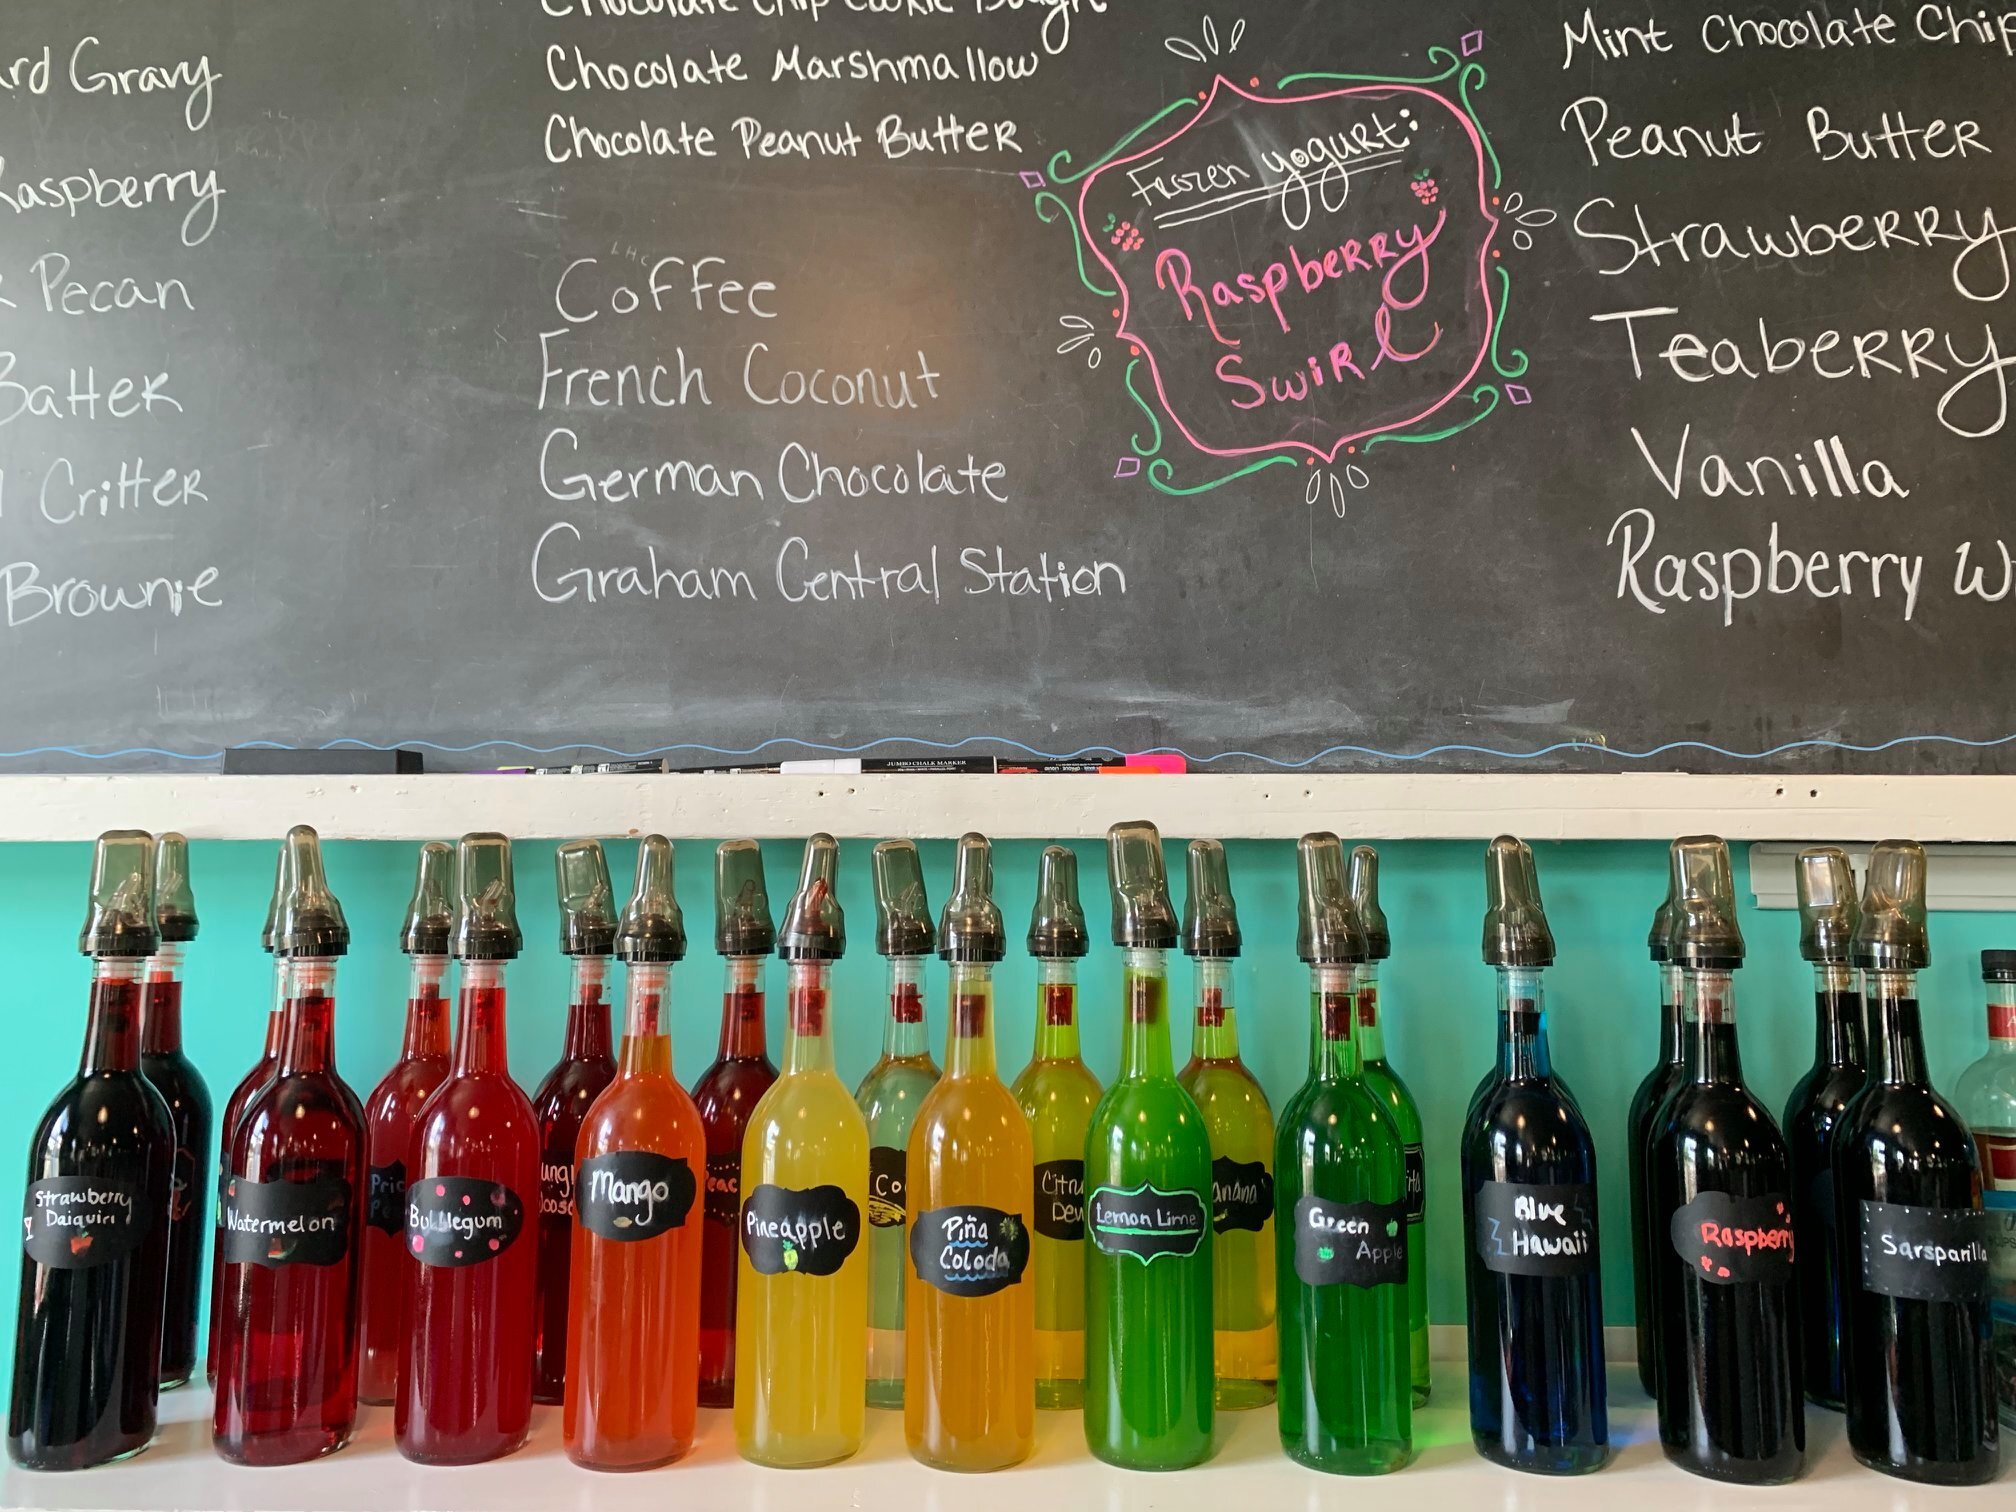 Gravy
Raspberry
Pecan
Batter
Critter
Brownie
Chocolate Chip Cookie Dough
Chocolate Marshmallow
Chocolate Peanut Butter
Coffee
French Coconut
German Chocolate
Graham Central Station
Frozen yogurt:
Raspberry
Swirl
Mint Chocolate Chip
Peanut Butter
Strawberry
Teaberry
Vanilla
Raspberry
JUMBO CHALK MARKER
Strawberry
Daiquiri
Watermelon
Bubblegum
Mango
Pineapple
Piña
Coloda
Lemon Lime
Green
Apple
Blue
Hawaii
Raspberry
Sarsparilla